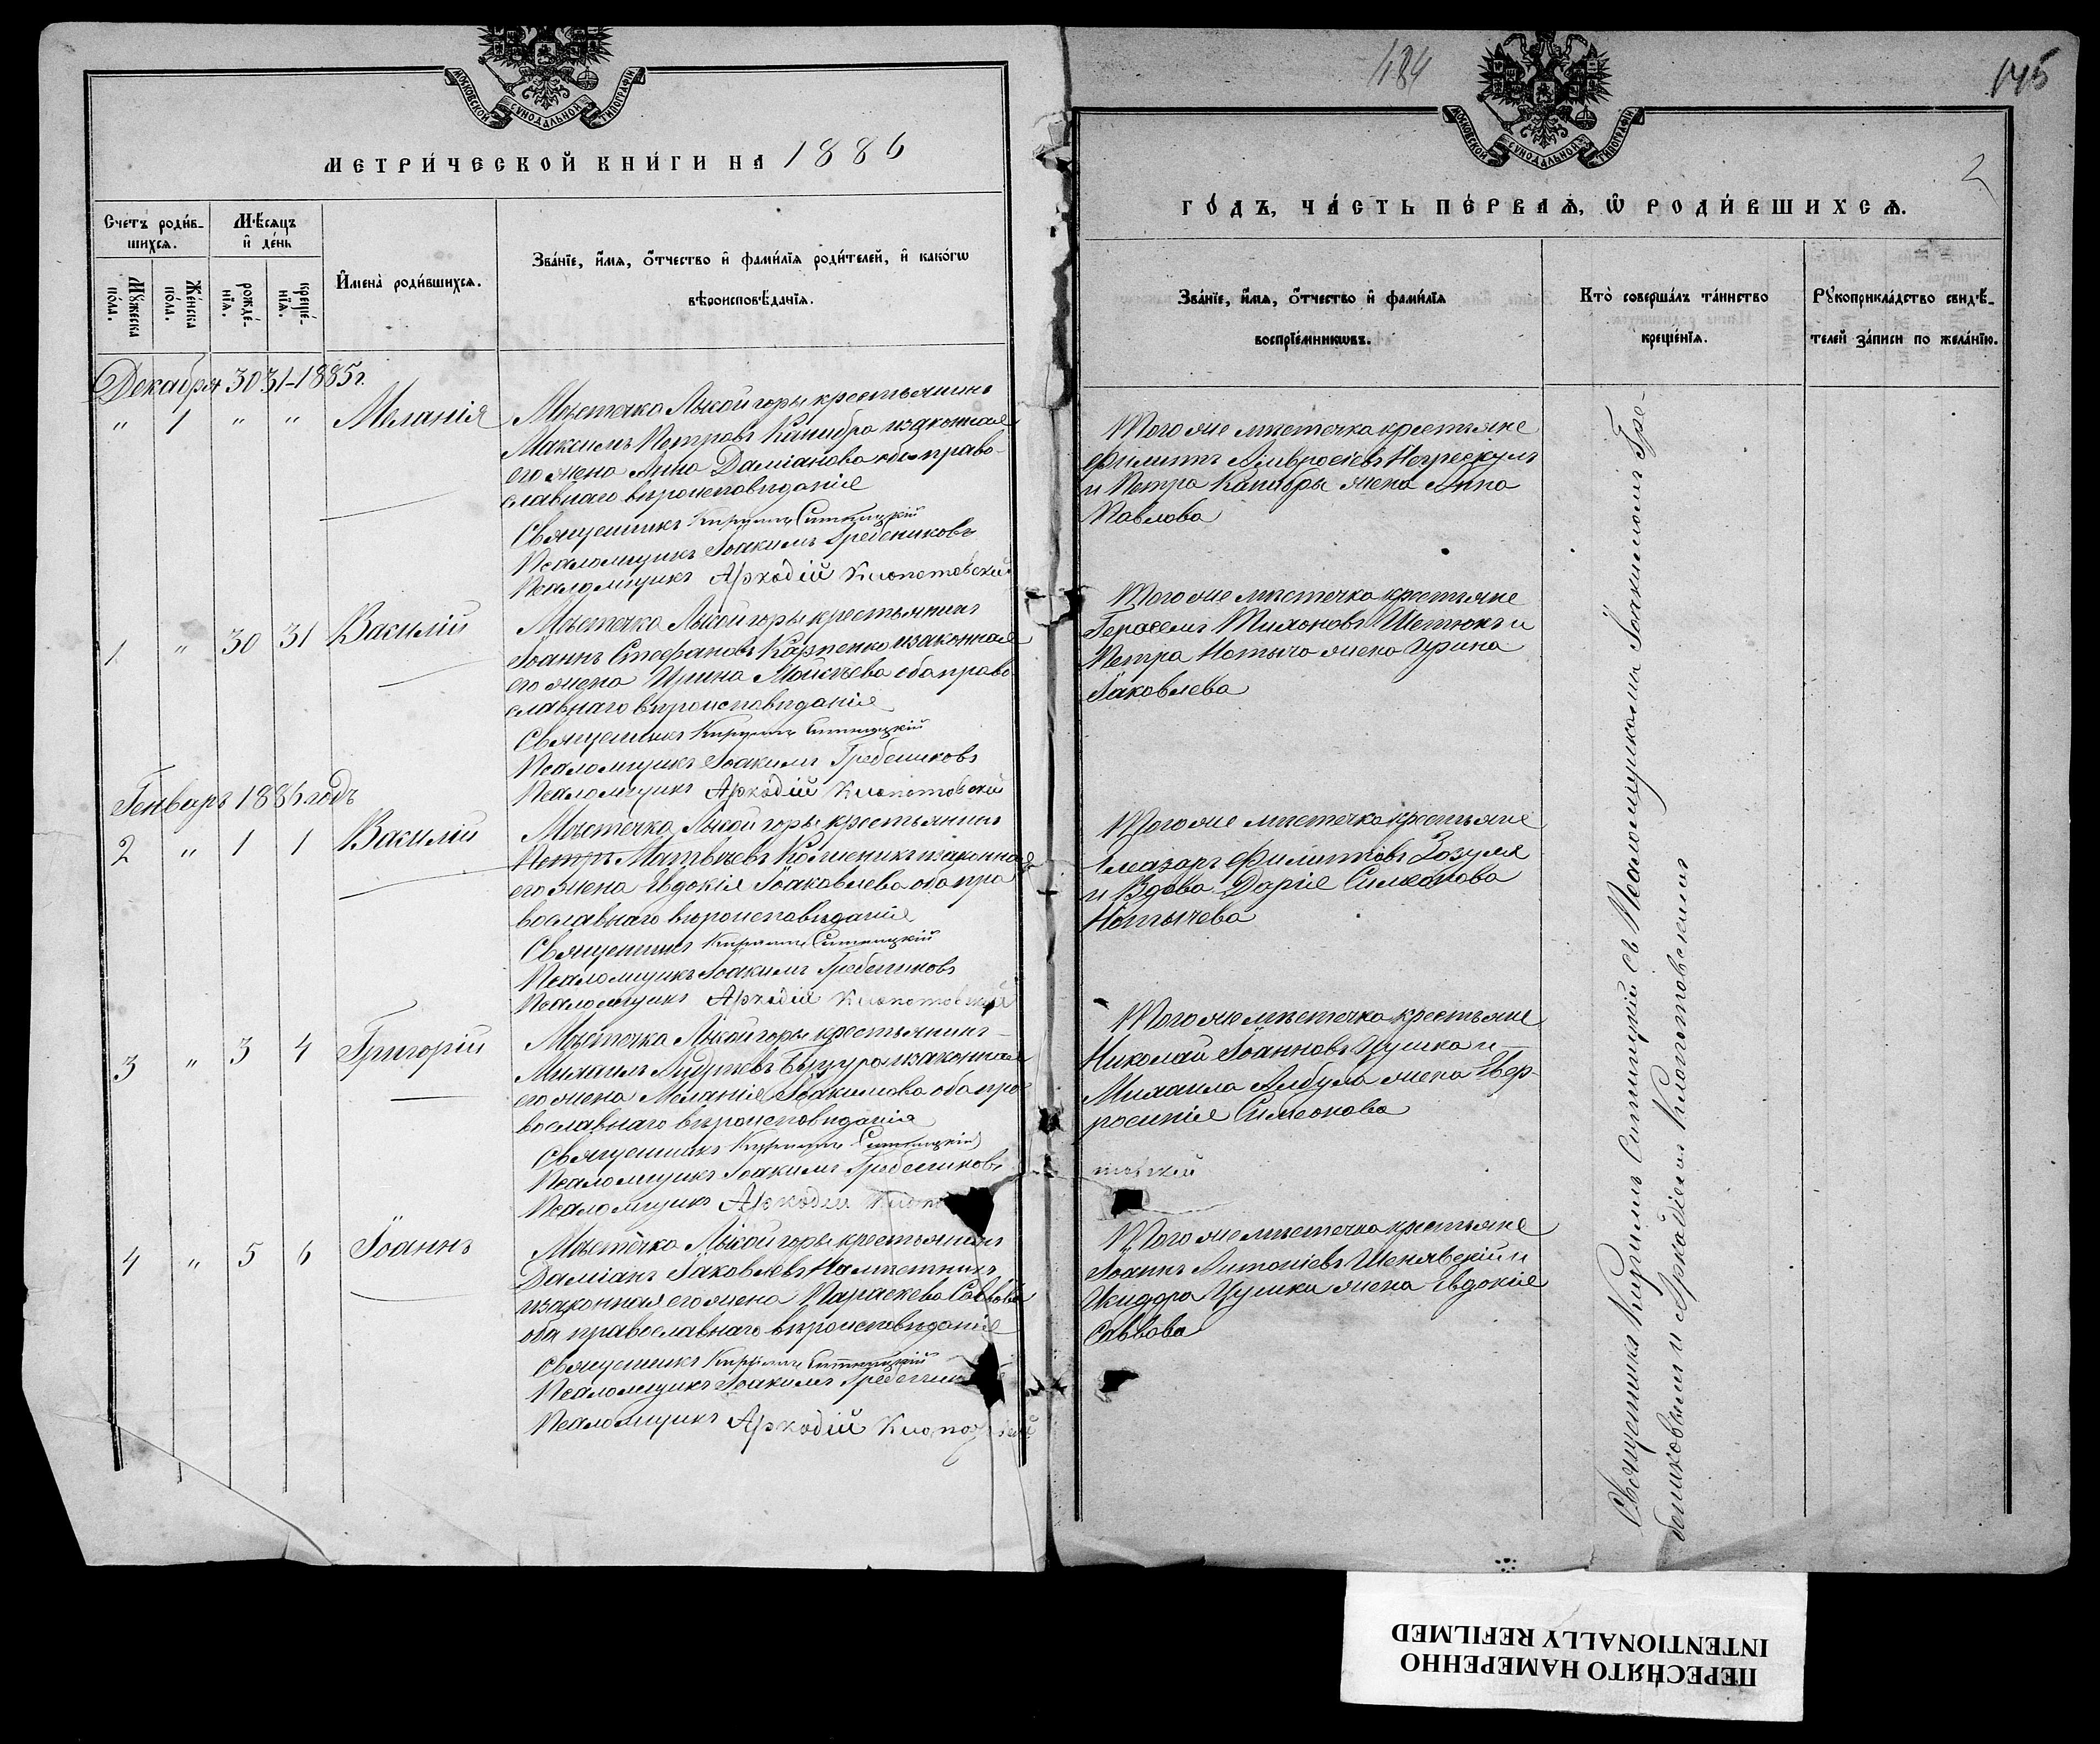 МОСКОВСКОЙ СУНОДАЛЬНОЙ ТИПОГРАФІИ
МЕТРИ́ЧЕСКОЙ КНИ́ГИ НА 1886
Счетъ роди́в-
шихсѧ.
Мѣ́сѧцъ
и҆ де́нь
Мꙋ́жеска
по́ла.
Же́нска
по́ла.
рожде́-
нїѧ.
креще́-
нїѧ.
И҆мена̀ роди́вшихсѧ.
Зва́нїе, и҆́мѧ, ѻ҆́тчество и҆ фами́лїѧ роди́телей, и҆ како́гѡ
вѣроисповѣ́данїѧ.
Декабря 30 31-1885г.
" 1 " " Меланія
Мѣстечка Лысой горы крестьянинъ
Максимъ Петровъ и законная
его жена Анна Даміанова оба право-
славнаго вѣроисповѣданія
Священникъ Кириллъ Ситницкій
Псаломщикъ Іоакимъ Гребениковъ
Псаломщикъ Аркадій Клопотовскій
1 " 30 31 Василій
Мѣстечка Лысой горы крестьянинъ
Іоаннъ Стефановъ Карпенко и законная
его жена Ирина Моисѣева оба право-
славнаго вѣроисповѣданія
Священникъ Кириллъ Ситницкій
Псаломщикъ Іоакимъ Гребениковъ
Псаломщикъ Аркадій Клопотовскій
Генваръ 1886 годъ
2 " 1 1 Василій
Мѣстечка Лысой горы крестьянинъ
Петръ Матвѣевъ и законная
его жена Евдокія Іоаковлева оба пра
вославнаго вѣроисповѣданія
Священникъ Кириллъ Ситницкій
Псаломщикъ Іоакимъ Гребениковъ
Псаломщикъ Аркадій Клопотовскій
3 " 3 4 Григорій
Мѣстечка Лысой горы крестьянинъ
Михаилъ Андреевъ и законная
его жена Меланія Іоакимова оба пра
вославнаго вѣроисповѣданія
Священникъ Кириллъ Ситницкій
Псаломщикъ Іоакимъ Гребениковъ
Псаломщикъ Аркадій Клопо
4 " 5 6 Іоаннъ
Мѣстечка Лысой горы крестьянинъ
Даміанъ Іаковлевъ
и законная его жена Параскева Саввова
оба православнаго вѣроисповѣданія
Священникъ Кириллъ Ситницкій
Псаломщикъ Іоакимъ Гребеник
Псаломщикъ Аркадій Клопо
184
145
2
МОСКОВСКОЙ СУНОДАЛЬНОЙ ТИПОГРАФІИ
ГО́ДЪ, ЧА́СТЬ ПЕ́РВАѦ, Ѡ҆ РОДИ́ВШИХСѦ.
Зва́нїе, и҆́мѧ, ѻ҆́тчество и҆ фами́лїѧ
воспрїе́мникѡвъ.
Кто̀ соверша́лъ та́инство
креще́нїѧ.
Рꙋкоприкла́дство свидѣ́-
телей за́писи по жела́нїю.
Того же мѣстечка крестьяне
Филиппъ Амвросіевъ Негрескулъ
и Петра жена Анна
Павлова
Того же мѣстечка крестьяне
Герасимъ Тихоновъ и
Петра жена Ирина
Іаковлева
Того же мѣстечка крестьяне
Елеазаръ Филипповъ Зозуля
и Вдова Дарія Симеонова
Того же мѣстечка крестьяне
Николай Іоанновъ Цушка и
Михаила Албула жена Евф-
росинія Симеонова
товскій
Того же мѣстечка крестьяне
Іоаннъ Антоніевъ и
Исидора Цушки жена Евдокія
Саввова
Священникъ Кириллъ Ситницкій съ Псаломщиками Іоакимомъ Гре-
бениковымъ и Аркадіемъ Клопотовскимъ
ПЕРЕСНЯТО НАМЕРЕННО
INTENTIONALLY REFILMED